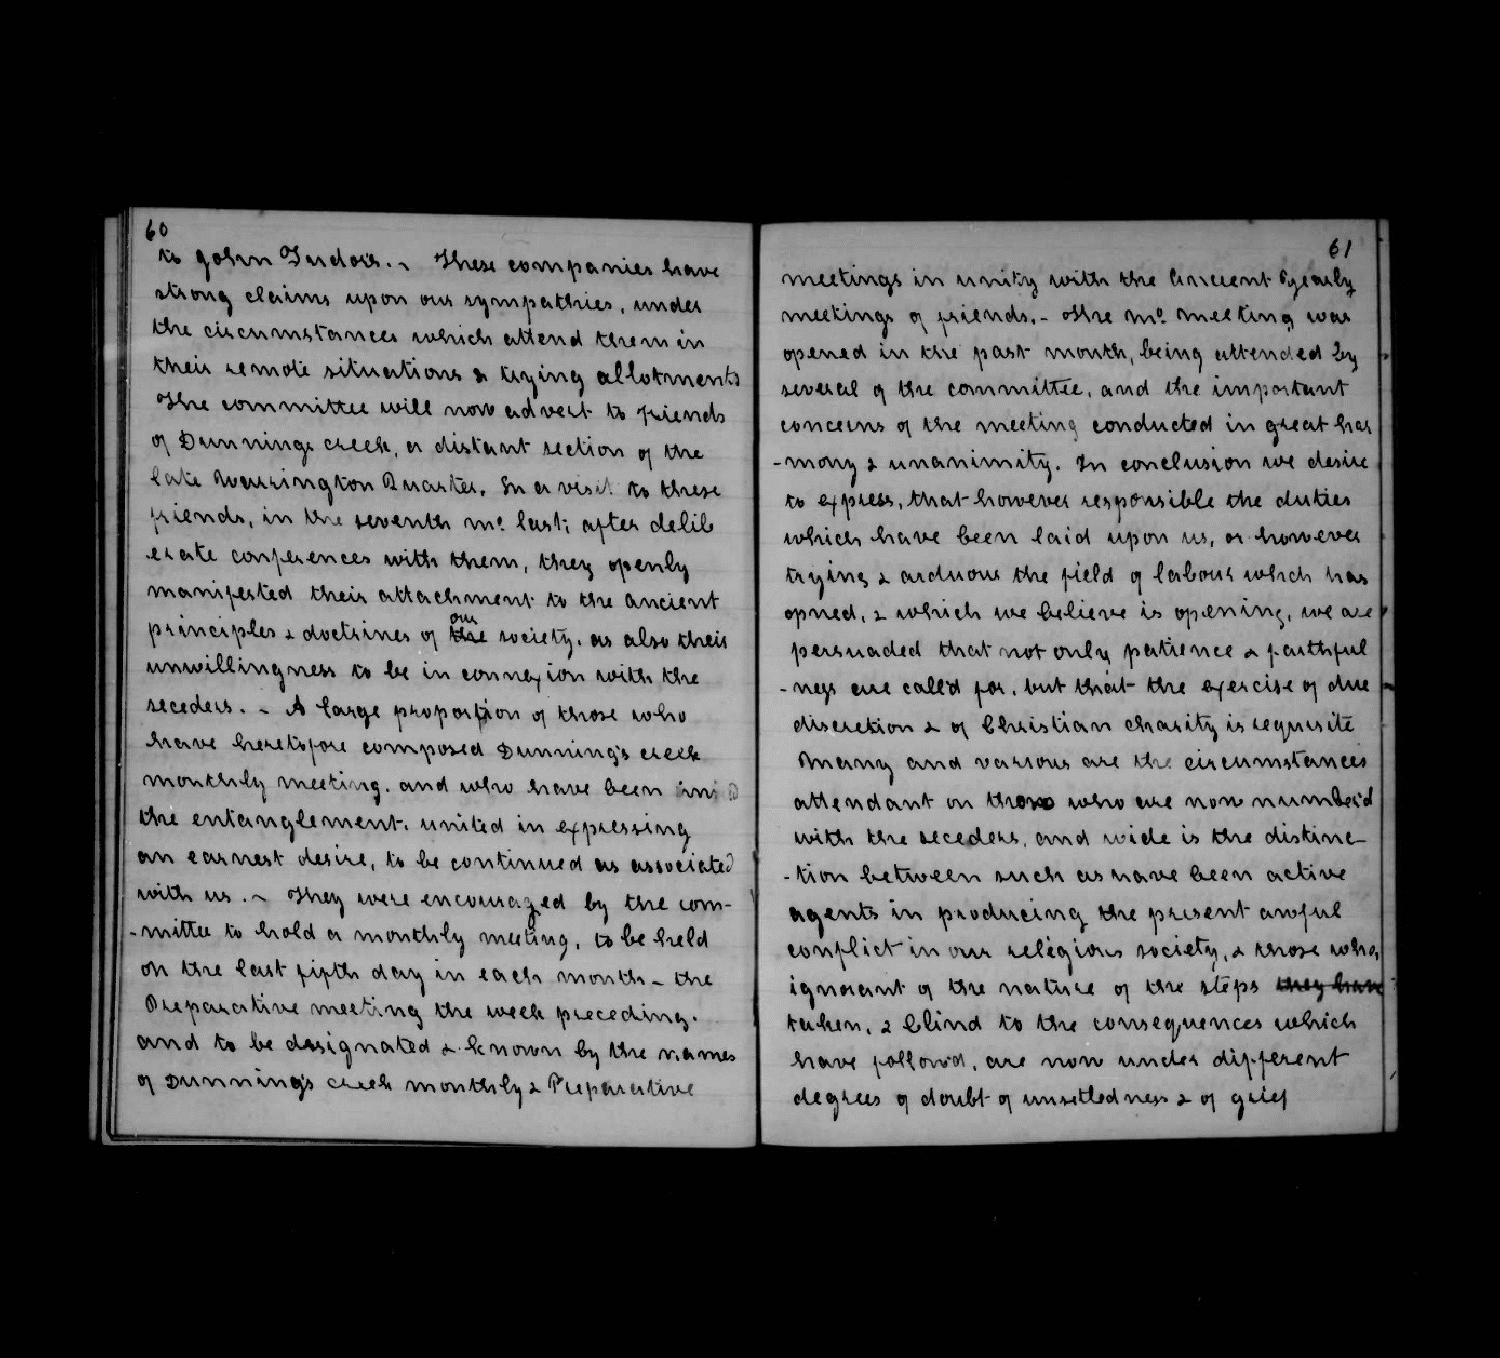 60
to John Tudor's. ~ These companies have
strong claims upon our sympathies, under
the circumstances which attend them in
their remote situations & trying allotments
The committee will now advert to friends
of Dunnings creek, a distant section of the
late Warrington Quarter. In a visit to these
friends, in the seventh mo. last; after delib
erate conferences with them, they openly
manifested their attachment to the ancient
principles & doctrines of our the society. as also their
unwillingness to be in connexion with the
seceders. ~ A large proportion of those who
have heretofore composed Dunning's creek
monthly meeting. and who have been
the entanglement. united in expressing
an earnest desire, to be continued as associated
with us. ~ They were encouraged by the com-
-mittee to hold a monthly meeting, to be held
on the last fifth day in each month - the
Preparative meeting the week preceding.
and to be designated & known by the names
of Dunning's creek monthly & Preparative
61
meetings in unity with the Ancient Yearly
meetings of friends. - The mo. meeting was
opened in the past month, being attended by
several of the committee, and the important
concerns of the meeting conducted in great har
-mony & unanimity. In conclusion we desire
to express, that however responsible the duties
which have been laid upon us, or however
trying & arduous the field of labour which has
opned, & which we believe is opening, we are
persuaded that not only patience & faithful
-ness are call'd for, but that the exercise of due
discretion & of Christian charity is requisite
Many and various are the circumstances
attendant on those who are now number'd
with the seceders, and wide is the distinc-
-tion between such as have been active
agents in producing the present awful
conflict in our religious society, & those who,
ignorant of the nature of the steps they have
taken, & blind to the consequences which
have follow'd, are now under different
degrees of doubt of unsettledness & of grief